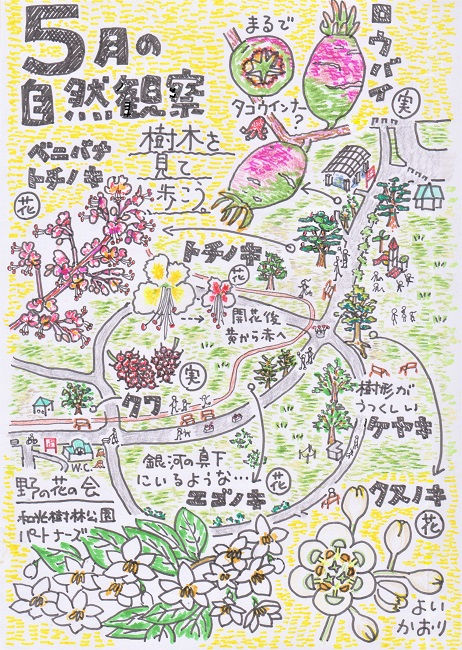 5月の
自然観察
樹木を
見て
歩こう。
まるで
タコウインナー?
ロウバイ
実
ベニバナ
トチノキ
花
トチノキ
花
開花後
黄から赤へ
実
クワ
樹形が
うつくしい
ケヤキ
銀河の真下
にいるような…
エゴノキ
花
クスノキ
花
よい
かおり
W.C.
野の花の会
和光樹林公園
パートナーズ